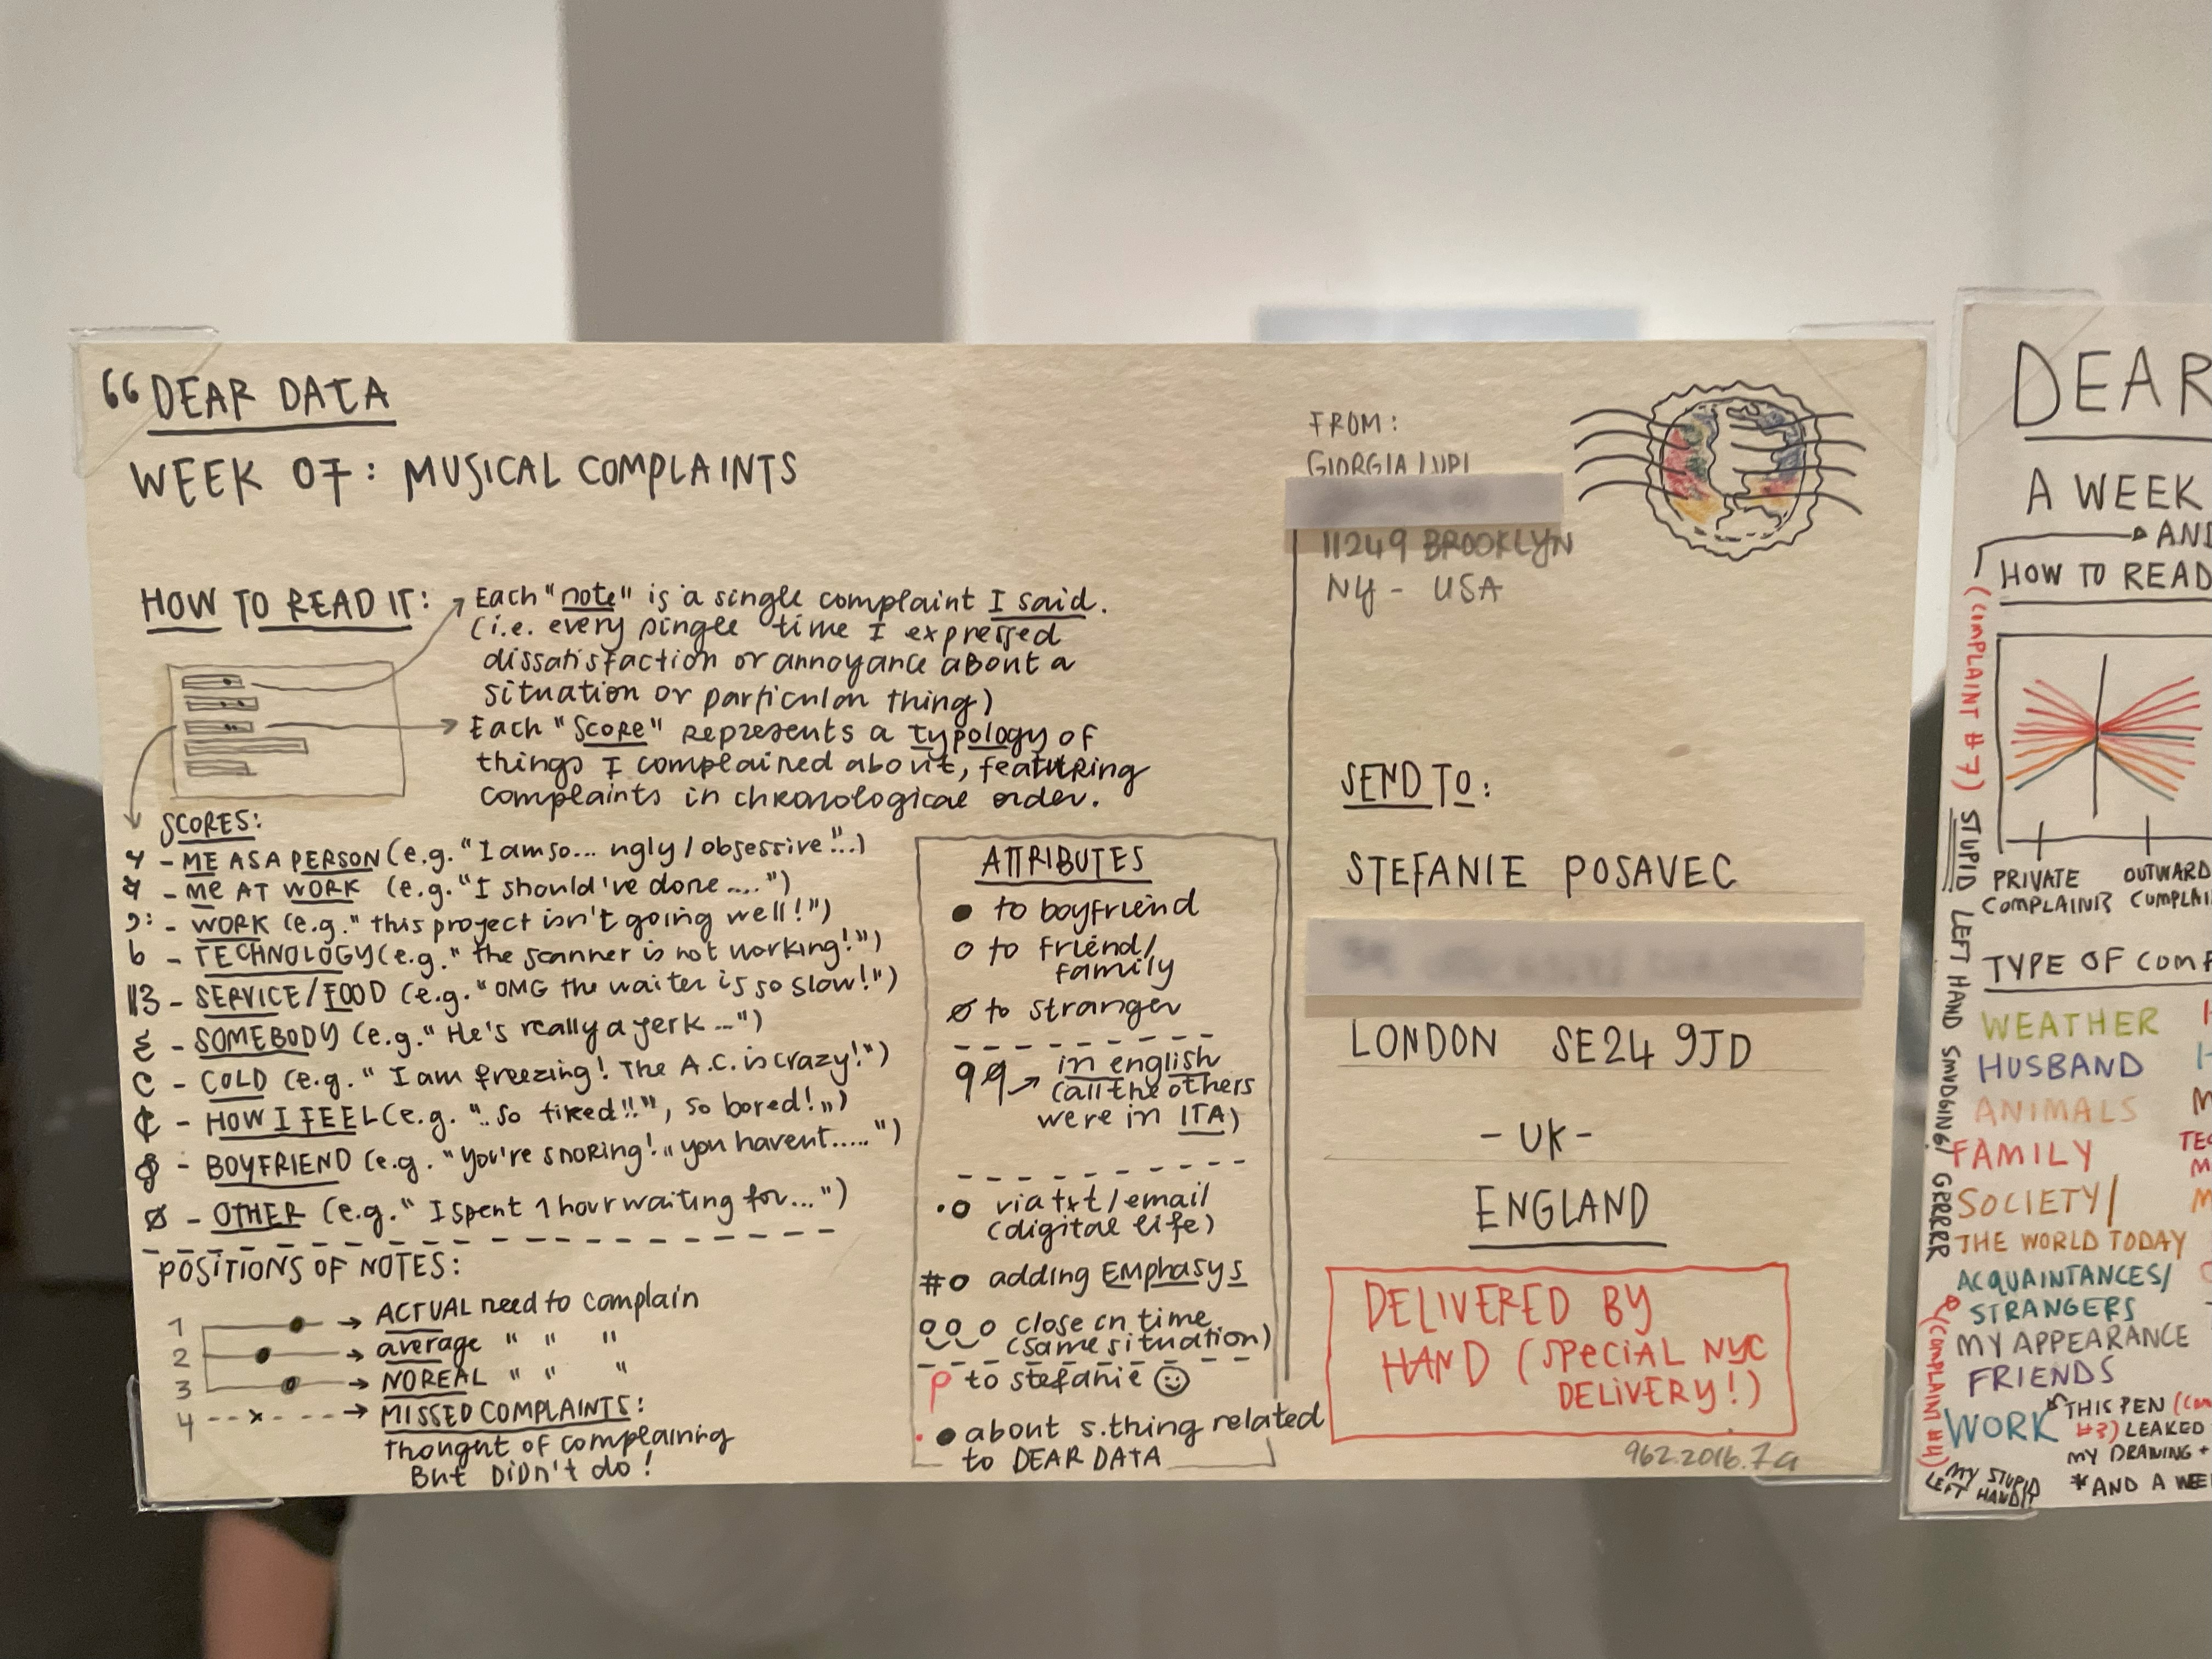 “DEAR DATA
WEEK 07: MUSICAL COMPLAINTS
HOW TO READ IT:
Each "note" is a single complaint I said.
(i.e. every single time I expressed
dissatisfaction or annoyance about a
situation or particular thing)
Each "score" represents a typology of
things I complained about, featuring
complaints in chronological order.
SCORES:
- ME AS A PERSON (e.g. "I am so... ugly / obsessive!"..)
- ME AT WORK (e.g. "I should've done....")
- WORK (e.g. "this project isn't going well!")
- TECHNOLOGY (e.g. "the scanner is not working!")
- SERVICE/FOOD (e.g. "OMG the waiter is so slow!")
- SOMEBODY (e.g. "He's really a jerk...")
- COLD (e.g. "I am freezing! The A.C. is crazy!")
- HOW I FEEL (e.g. "..so tired!!", so bored!")
- BOYFRIEND (e.g. "you're snoring!" "you havent.....")
- OTHER (e.g. "I spent 1 hour waiting for...")
POSITIONS OF NOTES:
1 → ACTUAL need to complain
2 → average " " "
3 → NO REAL " " "
4 --x--- → MISSED COMPLAINTS:
thought of complaining
But DIDN'T do!
ATTRIBUTES
● to boyfriend
o to friend/
family
ø to stranger
in english
(all the others
were in ITA)
via txt/email
(digital life)
#o adding EMphasys
ooo close in time
(same situation)
to stefanie ☺
about s.thing related
to DEAR DATA
FROM:
GIORGIA LUPI
11249 BROOKLYN
NY - USA
SEND TO:
STEFANIE POSAVEC
LONDON SE24 9JD
- UK -
ENGLAND
DELIVERED BY
HAND (SPECIAL NYC
DELIVERY!)
962.2016.7a
DEAR
A WEEK
AND
HOW TO READ
(COMPLAINT #7) STUPID LEFT HAND SMUDGING! GRRRRR
PRIVATE
COMPLAINT?
OUTWARD
COMPLAI
TYPE OF COMP
WEATHER
HUSBAND
ANIMALS
FAMILY
SOCIETY/
THE WORLD TODAY
ACQUAINTANCES/
STRANGERS
MY APPEARANCE
FRIENDS
WORK
THIS PEN (COM
#3) LEAKED
MY DRAWING +
*AND A WEE
(COMPLAINT #4)
MY STUPID
LEFT HAND!!